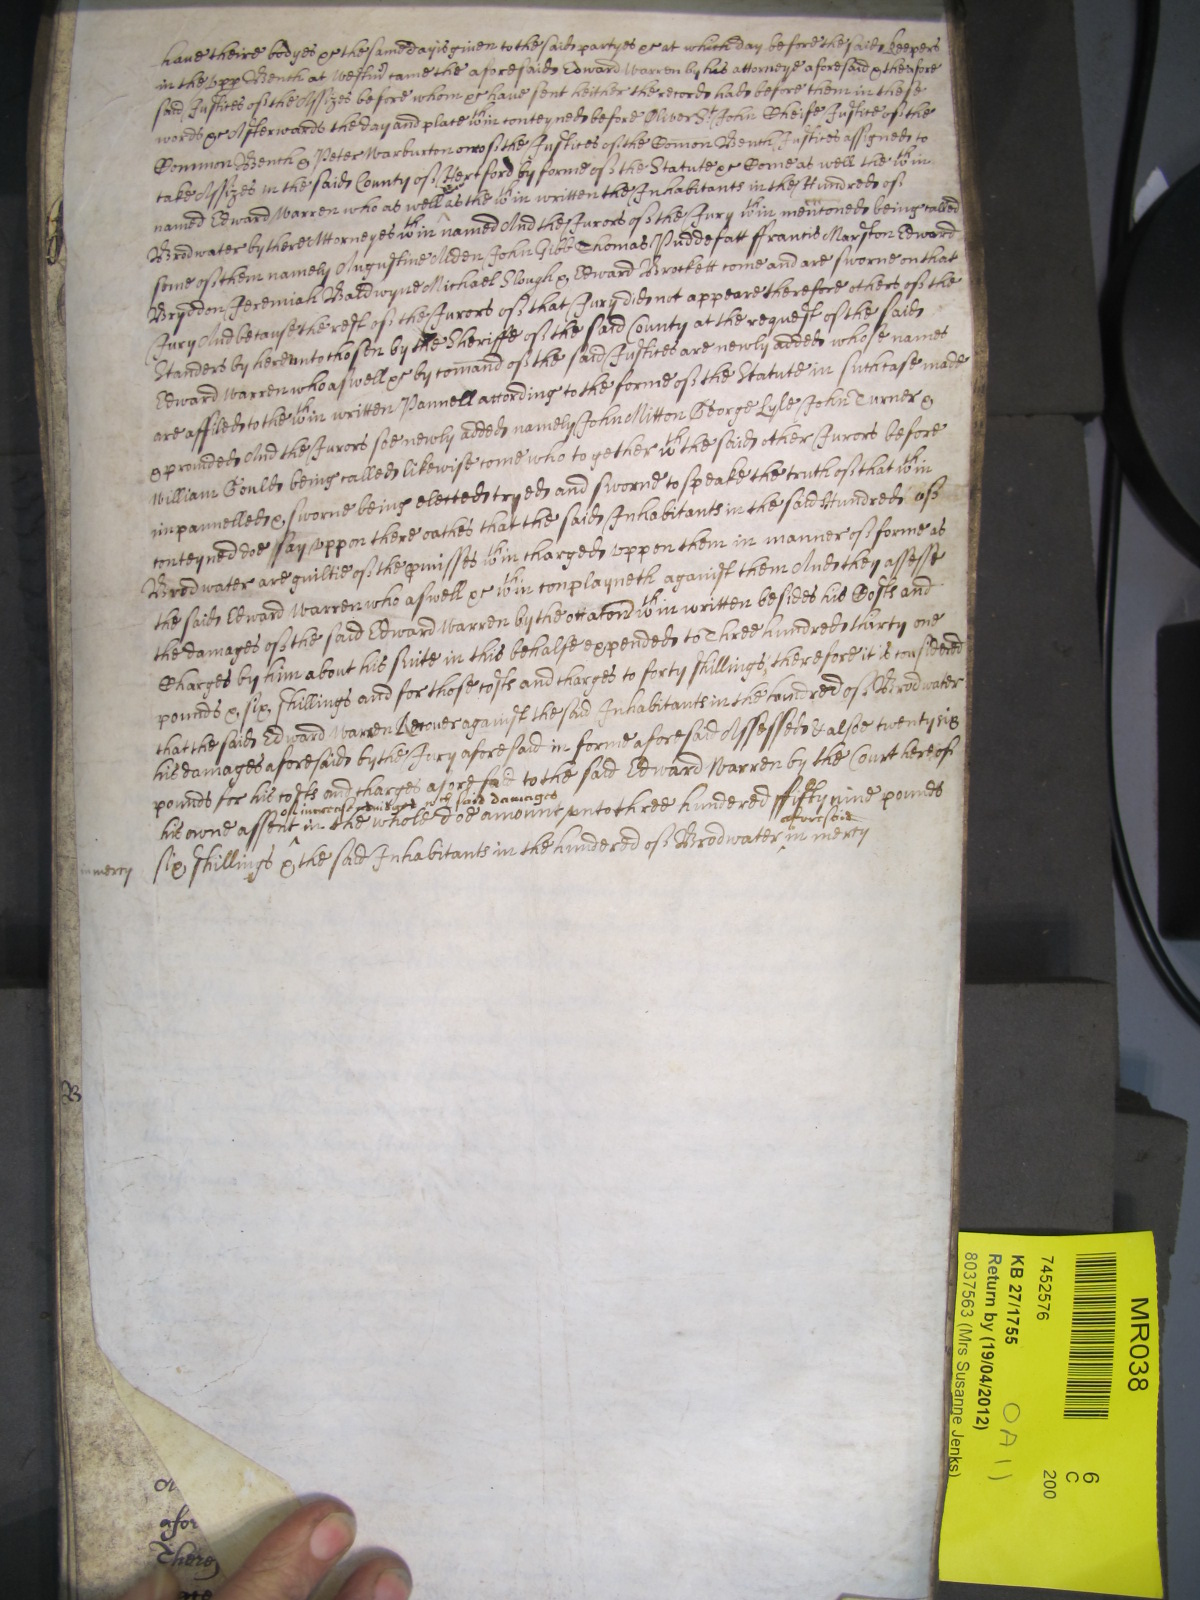 have theire bodyes &c the same day is given to the said partyes &c at which day before the said keepers
in the upp Bench at Westmr came the aforesaid Edward Warren by his attorneye aforesaid & the afore
said Justices of the Assizes before whom &c have sent heither the record had before them in these
words &c Afterwards the day and place wthin conteyned before Oliver St John Cheife Justice of the
Common Bench & Peter Warburton one of the Justices of the Comon Bench Justices assigned to
take Assizes in the said County of Hertford by forme of the Statute &c Come as well the wthin
named Edward Warren who as well &c as the wthin written the Inhabitants in the Hundred of
Brodwater by there Attorneyes wthin named And the Jurors of the Jury wthin mentoned being called
some of them namely Augustine Alden John Gibb Thomas Puddefatt ffrancis Marston Edward
Brysdon Jeremiah Baldwyne Michael Slough & Edward Brockett come and are sworne on that
Jury And because the rest of the Jurors of that Jury did not appeare therefore others of the
Standers by hereunto chosen by the Sheriffe of the said County at the request of the said
Edward Warren who aswell &c by comand of the said Justices are newly added whose names
are affiled to the wthin written Pannell according to the forme of the Statute in such case made
& provided And the Jurors soe newly added namely John Mitton George Lyle John Turner &
William Gould being called likewise come who together wth the said other Jurors before
inpannelled & sworne being elected tryed and sworne to speake the truth of that wthin
conteyned doe say uppon there oathes that the said Inhabitants in the said Hundred of
Brodwater are guiltie of the pmisses wthin charged uppon them in manner of forme as
the said Edward Warren who aswell &c wthin complayneth against them And they assesse
the damages of the said Edward Warren by the occation wthin written besides his Costs and
Charges by him about his suite in this behalfe expended to Three hundred thirty one
pounds & six shillings and for those costs and charges to forty shillings, therefore it is considered
that the said Edward Warren Recover against the said Inhabitants in the hundred of Brodwater
his damages aforesaid by the Jury aforesaid in forme aforesaid Assessed & alsoe twenty six
pounds for his costs and charges aforesad to the said Edward Warren by the Court here of
of increase adjudged wch said damages
his owne assent in the whole doe amount unto three hundered ffifty nine pounds
aforesaid
six shillings & the said Inhabitants in the hundered of Brodwater in mercy
in mercy
B
afor
There
MR038
6
C
200
7452576
KB 27/1755
OA1)
Return by (19/04/2012)
8037563 (Mrs Susanne Jenks)